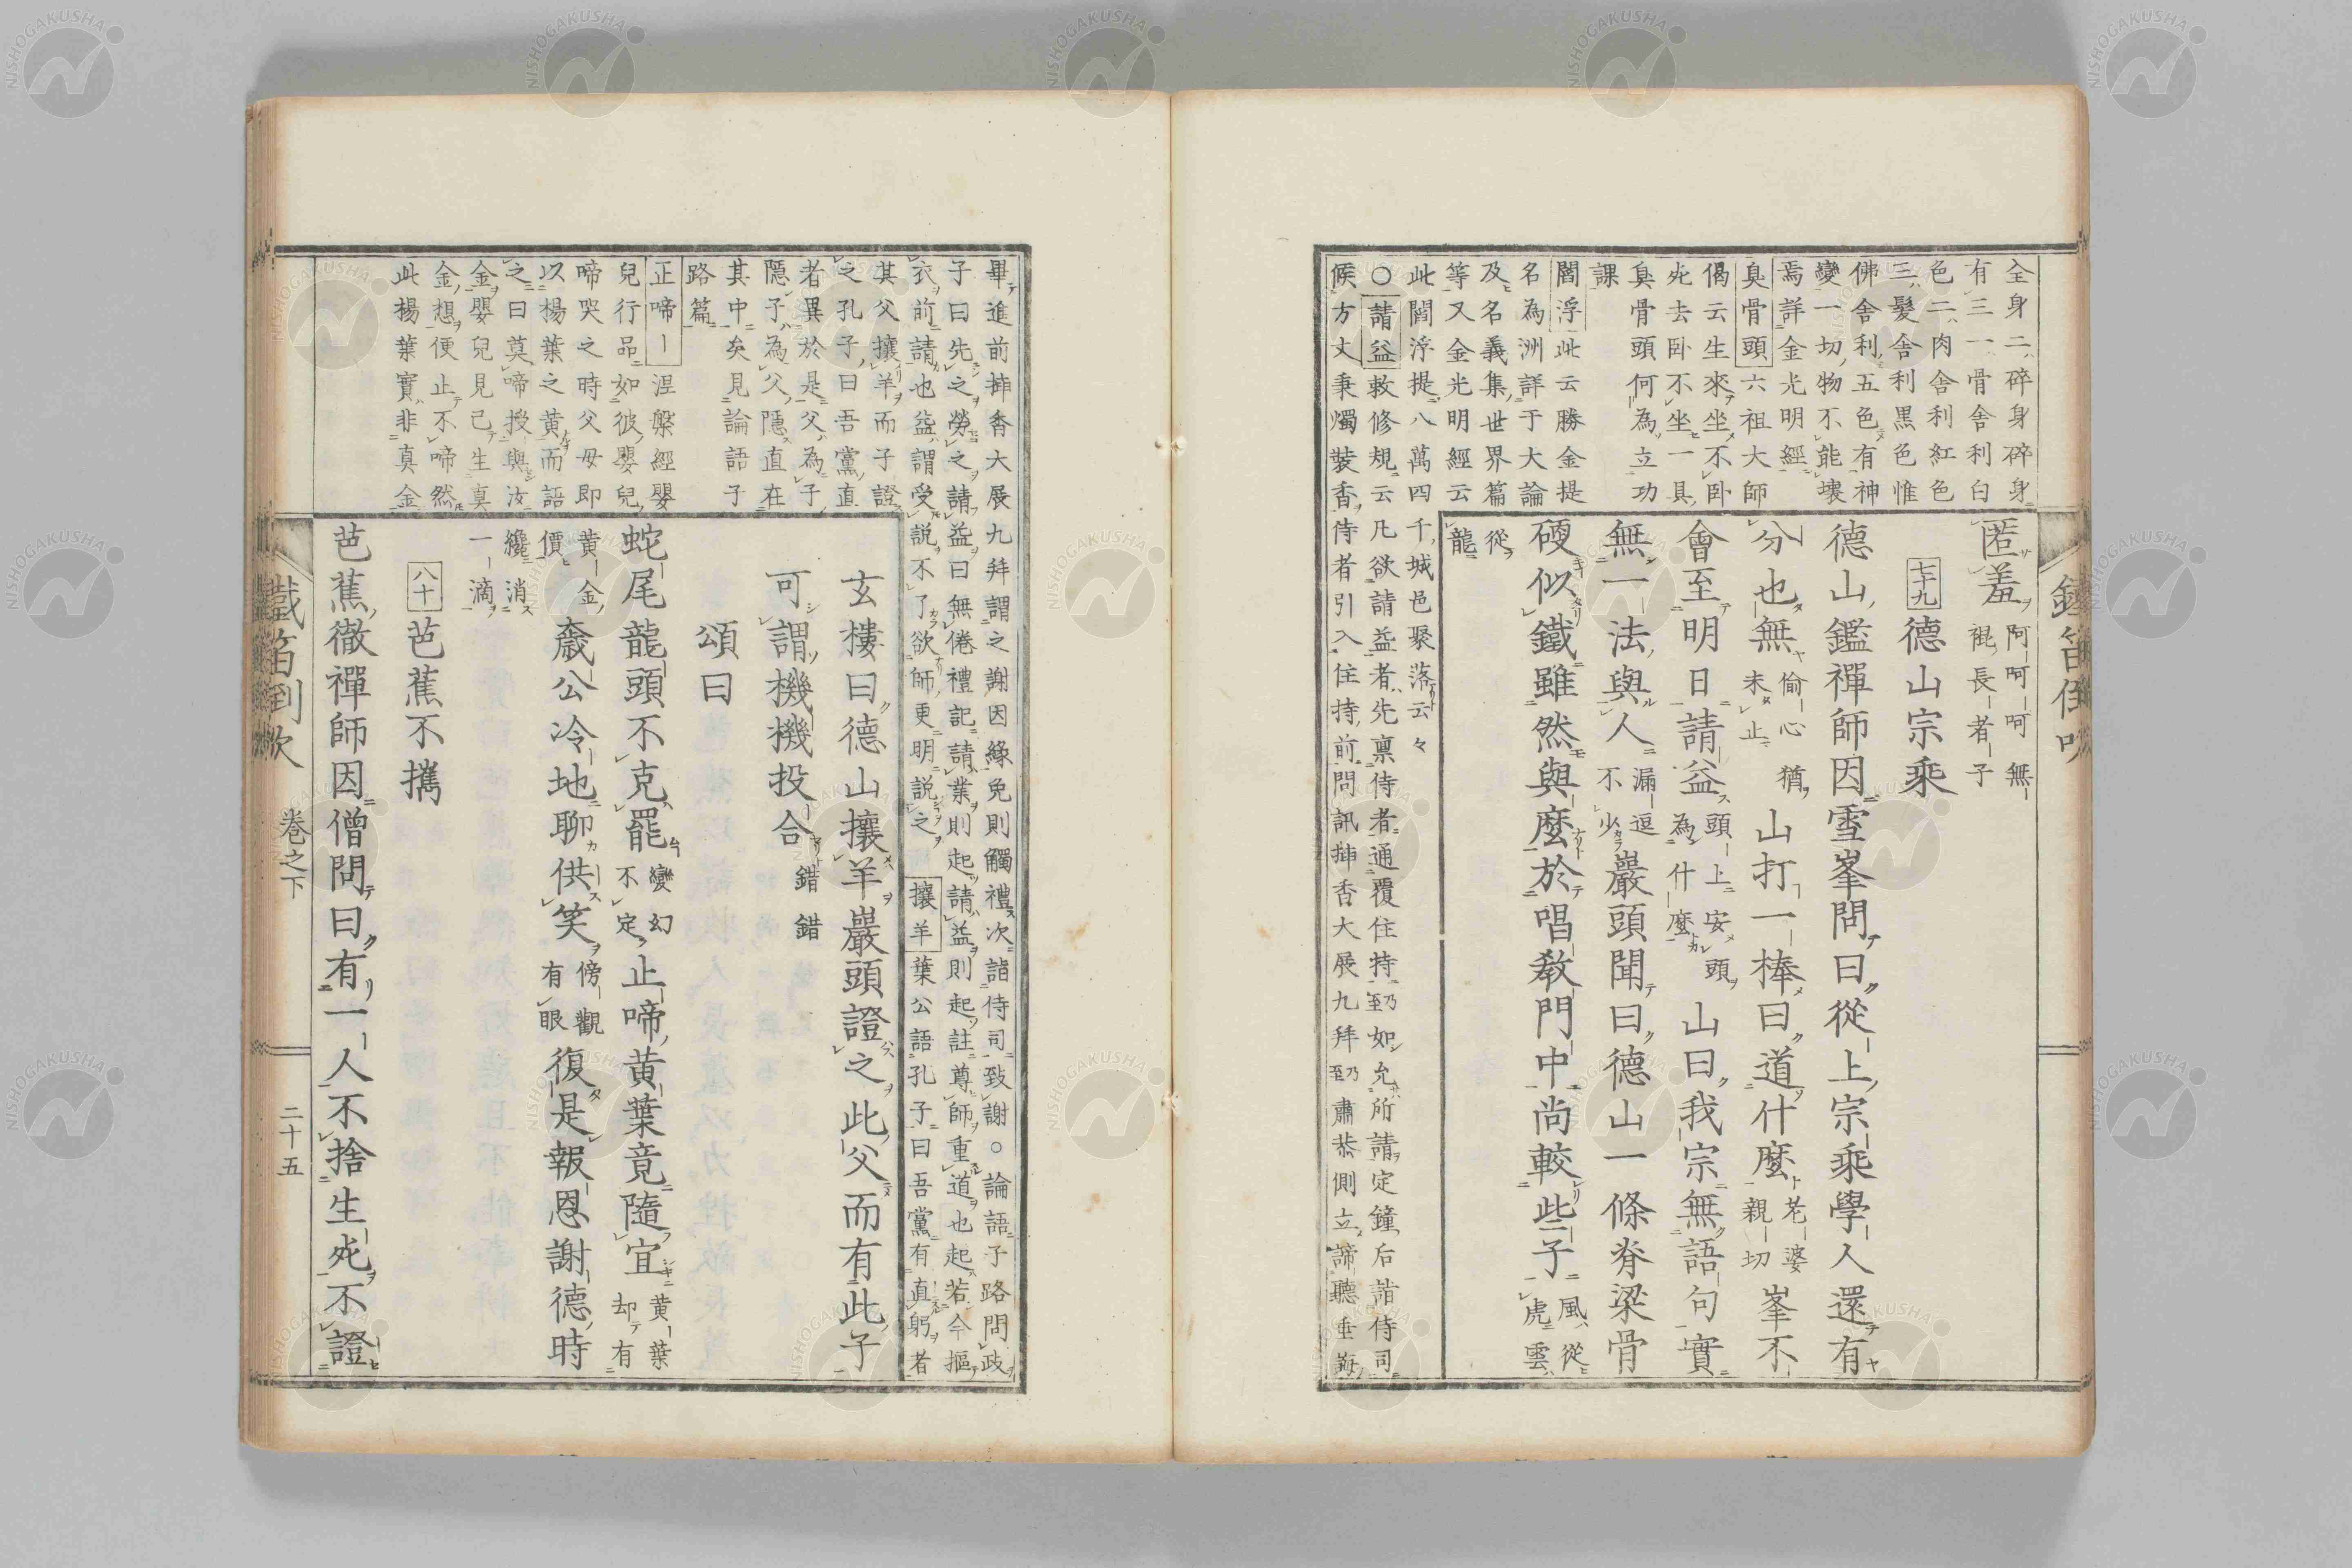 全身二碎身碎身
有三一骨舍利白
色二肉舍利紅色
三髮舍利黒色惟
佛舍利五色有神
變一切物不能壊
焉詳金光明經
臭骨頭六祖大師
偈云生來坐不卧
死去卧不坐一具
臭骨頭何為立功
課
閻浮此云勝金提
名為洲詳于大論
及名義集世界篇
等又金光明經云
此閻浮提八萬四千城邑聚落云々
○請益敕修規云凡欲請益者先禀侍者通覆住持乃至如允所請定鐘后詣侍司
候方丈秉燭裝香侍者引入住持前問訊挿香大展九拜乃至肅恭側立諦聽垂誨
匿羞阿呵呵無
裩長者子
七十九德山宗乘
德山鑑禪師因雪峯問曰從上宗乘學人還有
分也無偷心猶未止山打一棒曰道什麼老婆親切峯不
會至明日請益頭上安頭為什麼山曰我宗無語句實
無一法與人漏逗不少巖頭聞曰德山一條脊梁骨
硬似鐵雖然與麼於唱教門中尚較些子風從虎雲
從龍
鐵笛倒吹
畢進前挿香大展九拜謂之謝因緣免則觸禮次詣侍司致謝○論語子路問政
子曰先之勞之請益曰無倦禮記請業則起請益則起註尊師重道也起若今摳
衣前請也益謂受説不了欲師更明説之攘羊葉公語孔子曰吾黨有直躬者
其父攘羊而子證
之孔子曰吾黨直
者異於是父為子
隠子為父隠直在
其中矣見論語子
路篇
正啼一涅槃經嬰
兒行品如彼嬰兒
啼哭之時父母即
以楊葉之黄而語
之曰莫啼授與汝
金嬰兒見已生真
金想便止不啼然
此楊葉實非真金
玄樓曰德山攘羊巖頭證之此父而有此子
可謂機機投合錯錯
頌曰
蛇尾龍頭不克罷變幻不定止啼黄葉竟隨宜黄葉却有
黄金價巖公冷地聊供笑傍觀有眼復是報恩謝德時
纔消一滴
八十芭蕉不攜
芭蕉徹禪師因僧問曰有一人不捨生死不證
鐵笛倒吹
卷之下
二十五